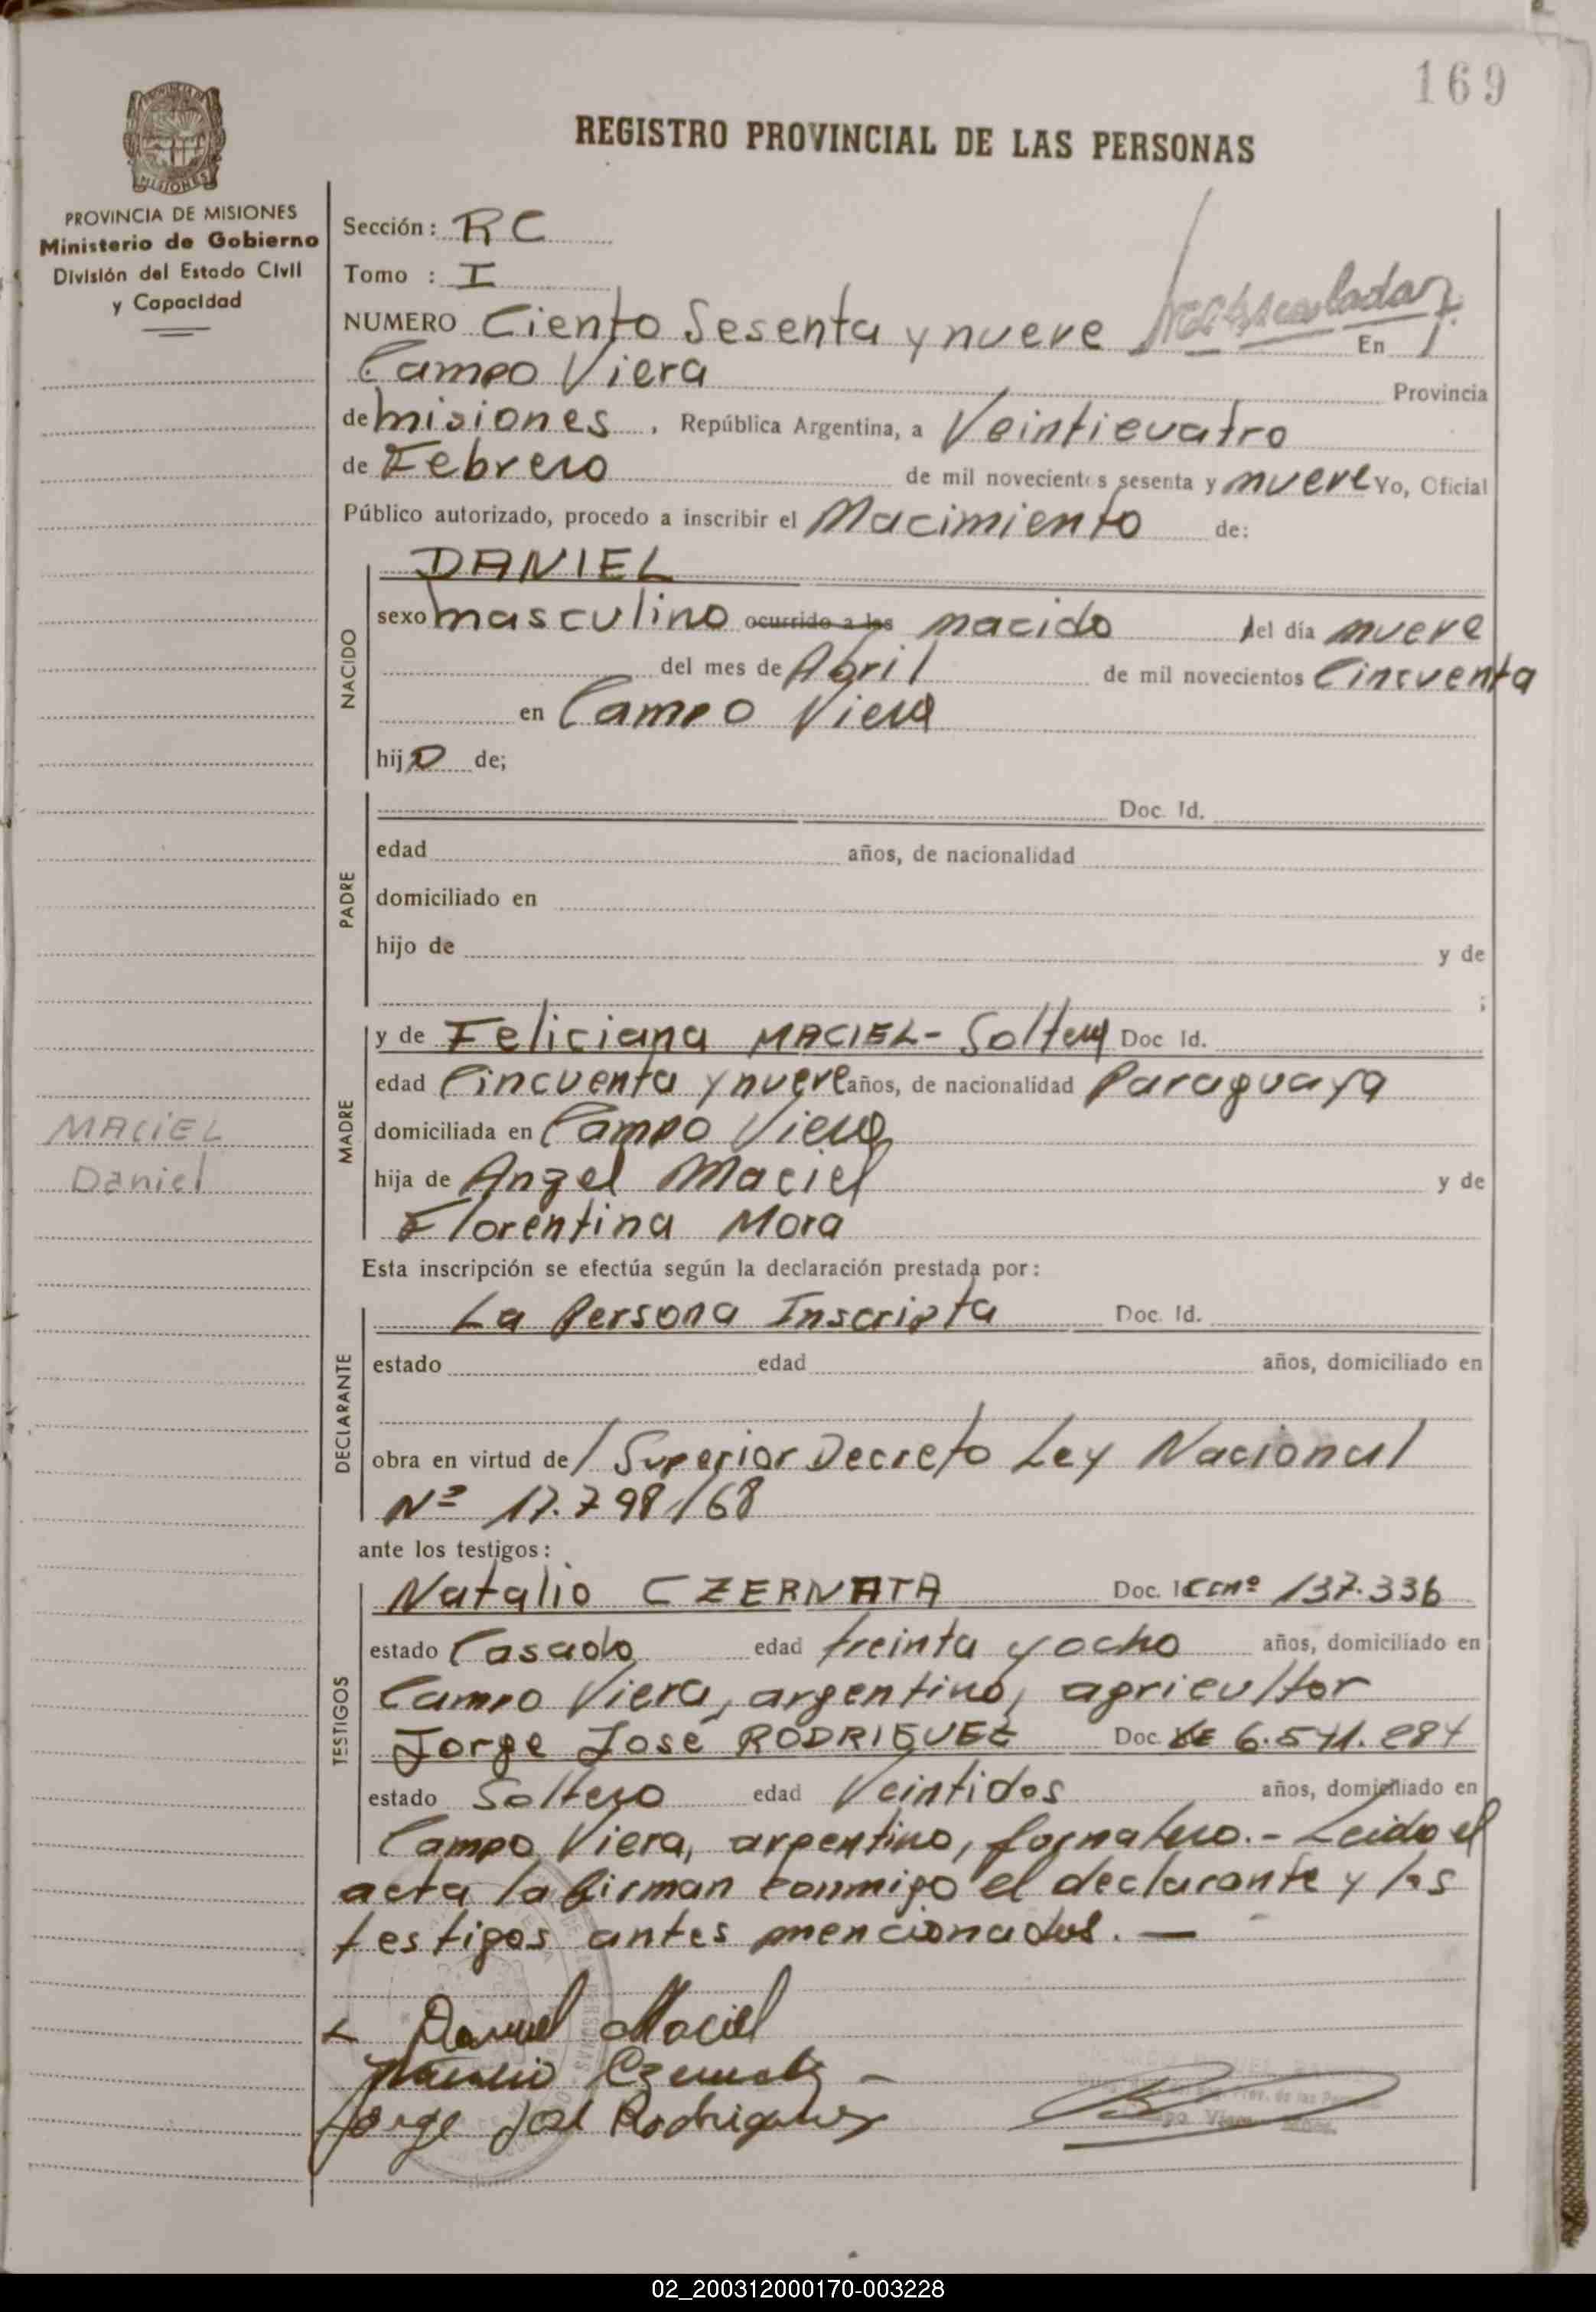 169
REGISTRO PROVINCIAL DE LAS PERSONAS
MISIONES
PROVINCIA DE MISIONES
Ministerio de Gobierno
División del Estado Civil
y Capacidad
Sección: RC
Tomo : I
NUMERO Ciento Sesenta y nueve En
Campo Viera Provincia
de misiones, República Argentina, a Veinticuatro
de Febrero de mil novecientos sesenta y nueve Yo, Oficial
Público autorizado, procedo a inscribir el Nacimiento de:
NACIDO
DANIEL
sexo masculino ocurrido a las nacido del día nueve
del mes de Abril de mil novecientos Cincuenta
en Campo Viera
hijo de;
PADRE
Doc. Id.
edad años, de nacionalidad
domiciliado en
hijo de y de
;
MADRE
y de Feliciana MACIEL- Soltera Doc Id.
edad Cincuenta y nueve años, de nacionalidad Paraguaya
domiciliada en Campo Viera
hija de Angel Maciel y de
Florentina Mora
MACIEL
Daniel
Esta inscripción se efectúa según la declaración prestada por:
DECLARANTE
La Persona Inscripta Doc. Id.
estado edad años, domiciliado en
obra en virtud de / Superior Decreto Ley Nacional
Nº 17.798/68
ante los testigos:
TESTIGOS
Natalio CZERNATA Doc. I 137.336
estado Casado edad treinta y ocho años, domiciliado en
Campo Viera, argentino, agricultor
Jorge José RODRIGUEZ Doc. LE 6.541.284
estado Soltero edad Veintidos años, domiciliado en
Campo Viera, argentino, jornalero.- Leido el
acta la firman conmigo el declarante y los
testigos antes mencionados. —
Daniel Maciel
Natalio Czernata
Jorge José Rodriguez
02_200312000170-003228